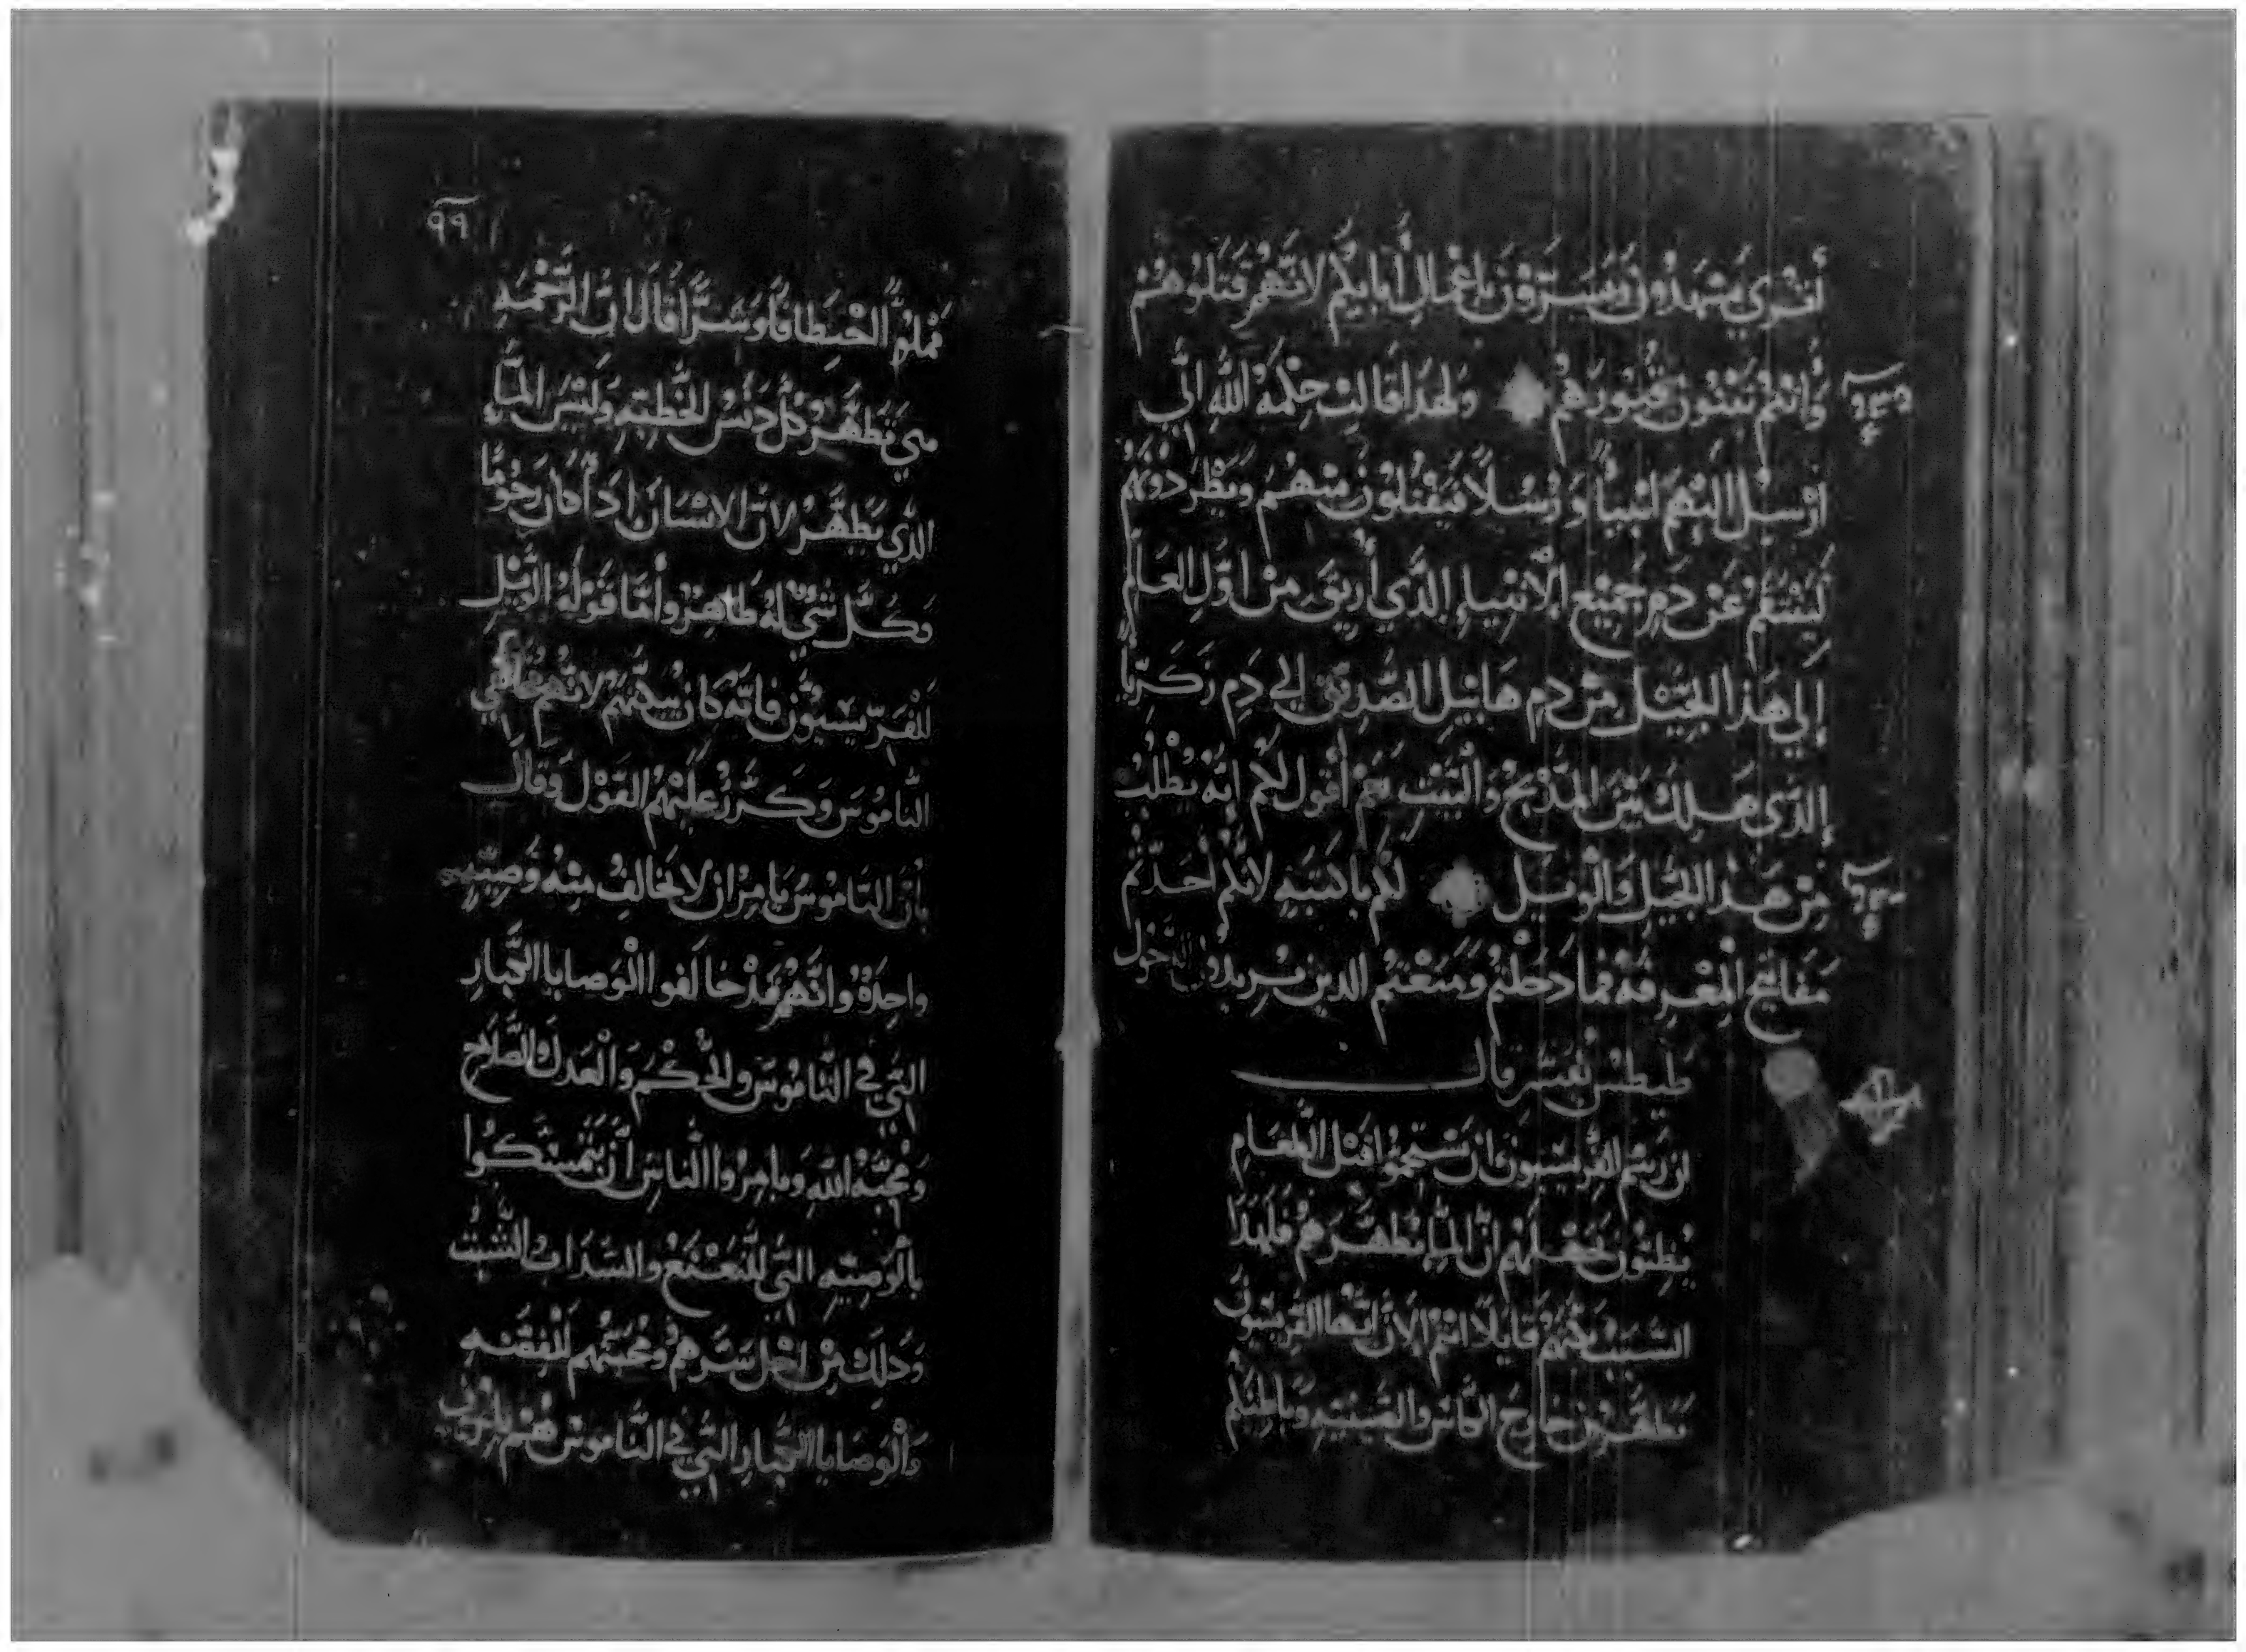 أترى تشهدون وتسرون باعمال أبايكم لانهم قتلوهم
وأنتم تبنون قبورهم ولهدا قالت حكمة الله اني
ارسل اليهم انبياً ورسلاً فيقتلون منهم ويطردونهم
لينتقم عن دم جميع الانبياء الذي أريق من اول العالم
إلي هذا الجيل من دم هابيل الصديق الي دم زكريا
الذي هلك بين المذبح والبيت نعم أقول لكم انه يطلب
من هذا الجيل والويل لكم ياكتبه لانكم أخدتم
مفاتيح المعرفة فما دخلتم ومنعتم الدين يريدون الدخول
طيطس يفسر قال
ان رسم الفريسيون ان يستحموا قبل الطعام
يظنون بجهلهم ان الماء يطهرهم فلهدا
السبب بكتهم قايلا انتم الان ايها الفريسيون
تطهرون خارج الكاس والصينيه وباطنكم
٩٩
مملو اختطافاً وشراً قال ان الرحمه
هي تطهر كل دنس الخطيه وليس الماء
الذي يطهر لان الانسان ادا كان رحوماً
وكل شي له طاهر وأما قوله الويل
للفريسيون فانه كان يبكتهم لانهم مخالفي
الناموس وكرر عليهم القول وقال
بان الناموس يامر ان لا يخالف منه وصيه
واحدة وانهم قد خالفوا الوصايا الكبار
التي في الناموس والحكم والعدل والصلاح
ومحبة الله ويامروا الناس أن يتمسكوا
بالوصيه التي للنعنع والسداب والشبت
ودلك من اجل شرهم ومحبتهم للفضه
والوصايا الكبار التي في الناموس هم